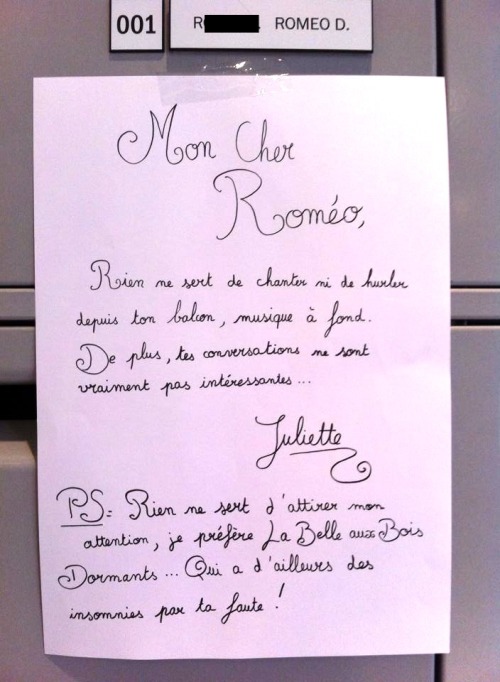 001
R ROMEO D.
Mon Cher
Roméo,
Rien ne sert de chanter ni de hurler
depuis ton balcon, musique à fond.
De plus, tes conversations ne sont
vraiment pas intéressantes...
Juliette
PS: Rien ne sert d'attirer mon
attention, je préfère La Belle aux Bois
Dormants... Qui a d'ailleurs des
insomnies par ta faute !